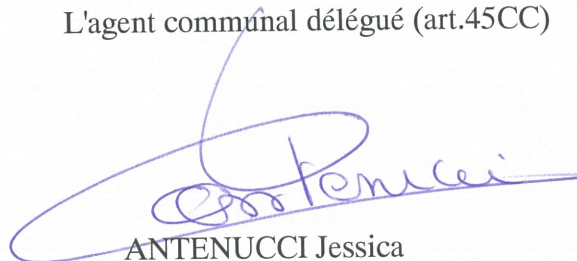 L'agent communal délégué (art.45CC)
Antenucci
ANTENUCCI Jessica